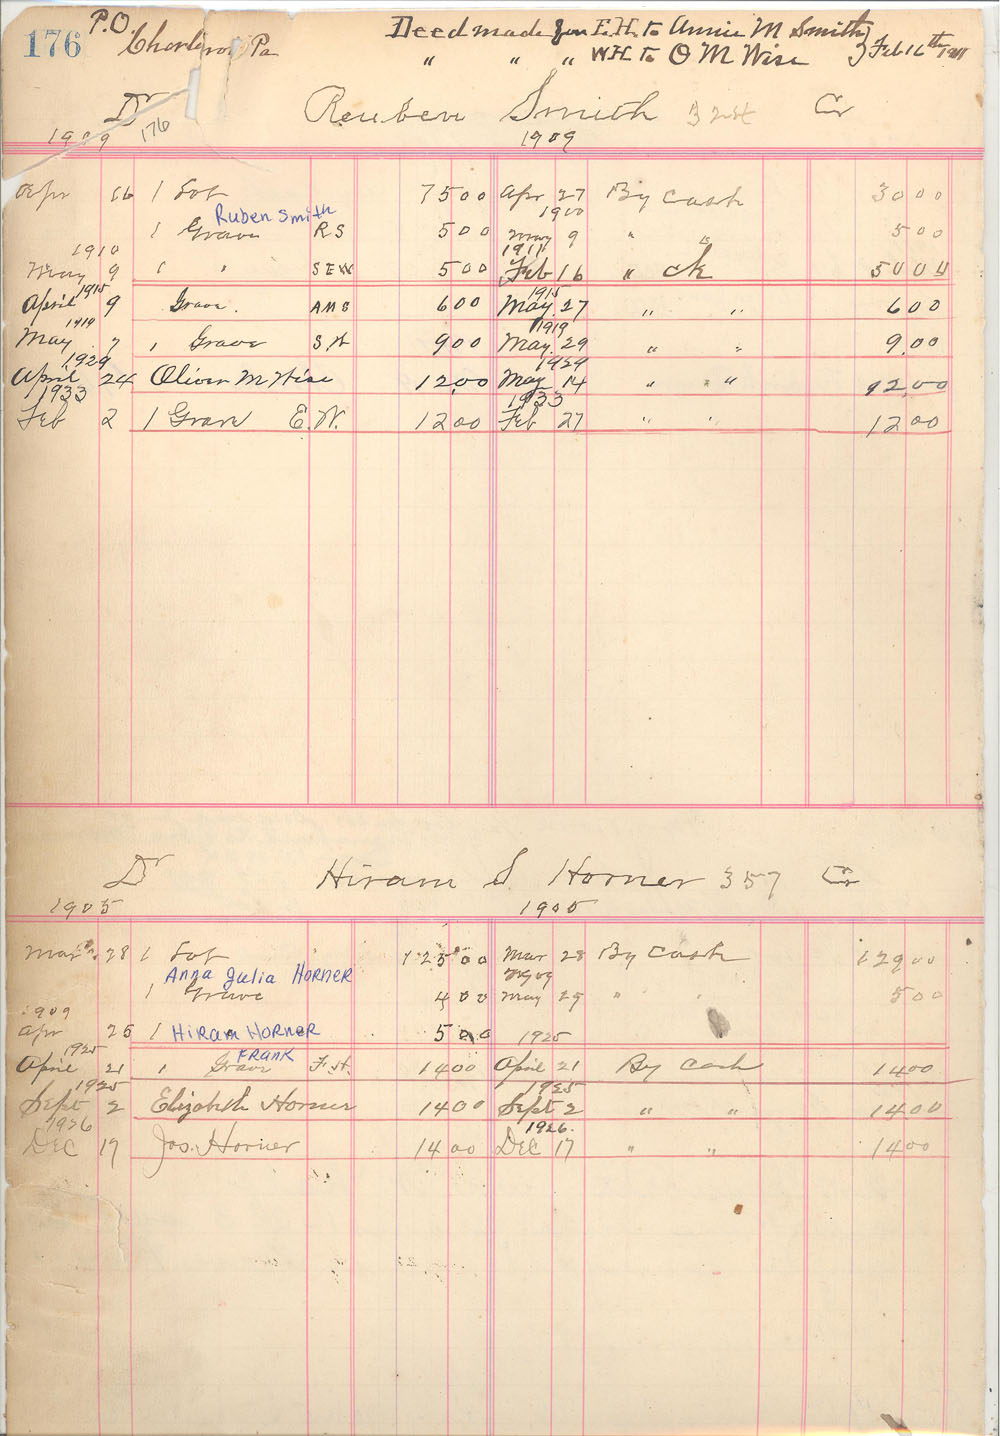 176 P.O. Charleroi Pa
Deed made from E.H. to Annie M Smith
" " " W.H. to O M Wise } Feb 16th 1911
Dr Reuben Smith 324 Cr
176
1909 1909
Apr 16 1 Lot 75 00 Apr 27 By Cash 30 00
Ruben Smith 1910
1 Grave R S 5 00 May 9 " " 5 00
1910 1911
May 9 1 " S E W 5 00 Feb 16 " ck 50 00
1915 1915
April 9 Grave. A M S 6 00 May 27 " " 6 00
1919 1919
May 7 1 Grave S.H 9 00 May 29 " " 9.00
1929 1929
April 24 Oliver M Wise 12.00 May 14 " " 12.00
1933 1933
Feb 2 1 Grave E.W. 12 00 Feb 27 " " 12 00
Dr Hiram S. Horner 357 Cr
1905 1905
Mar 28 1 Lot 125 00 Mar 28 By Cash 129 00
Anna Julia HORNER 1909
1 Grave 4 00 May 29 " " 5 00
1909
Apr 25 1 HIRAM HORNER 5 00 1925
1925 FRANK
April 21 1 Grave F.H. 14 00 April 21 By Cash 14 00
1925 1925
Sept 2 Elizabeth Horner 14 00 Sept 2 " " 14 00
1926 1926.
DEC 17 Jos. Horner 14 00 DEC 17 " " 14 00